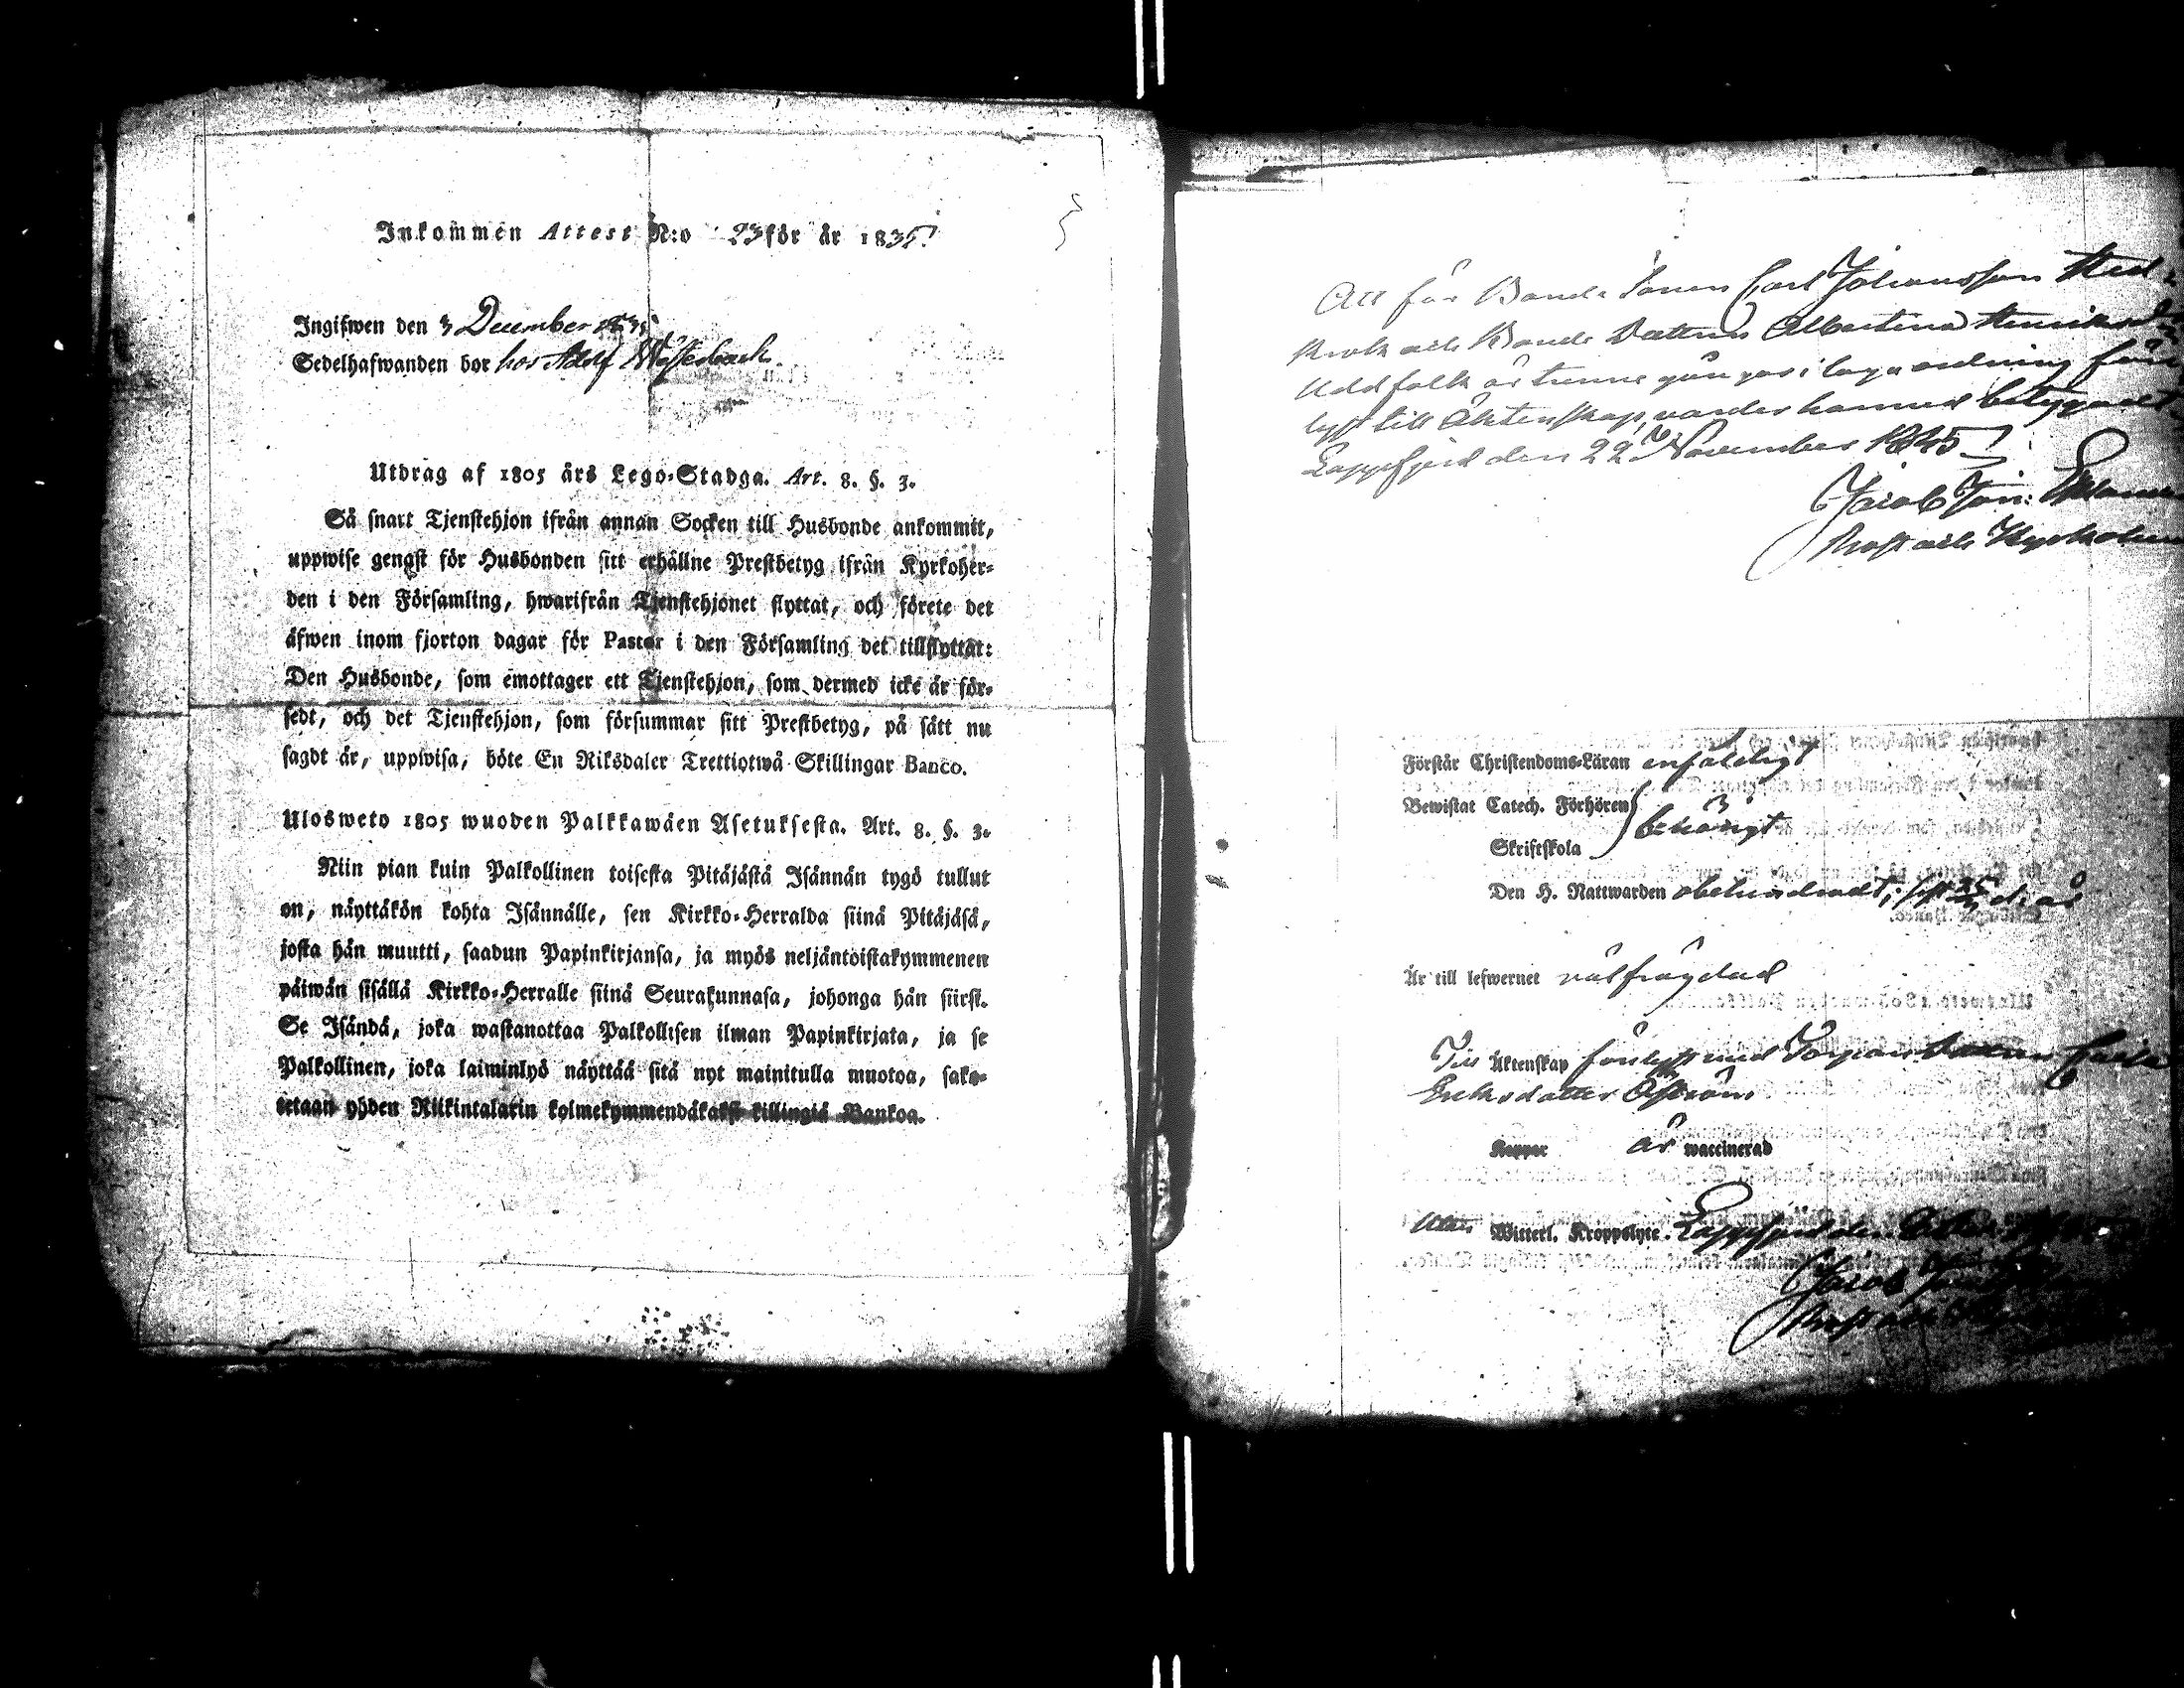 Inkommen Attest N:o 23 för år 1835.
Ingifwen den 3 December 1835
Sedelhafwanden bor hos Adolf Wästerback
Utdrag af 1805 års Lego-Stadga. Art. 8. §. 3.
Så snart Tjenstehjon ifrån annan Socken till Husbonde ankommit,
uppwise gengst för Husbonden sitt erhållne Prestbetyg ifrån Kyrkoher-
den i den Församling, hwarifrån Tjenstehjonet flyttat, och förete det
äfwen inom fjorton dagar för Pastor i den Församling det tillflyttat:
Den Husbonde, som emottager ett Tjenstehjon, som dermed icke är för-
sedt, och det Tjenstehjon, som försummar sitt Prestbetyg, på sätt nu
sagdt är, uppwisa, böte En Riksdaler Trettiotwå Skillingar Banco.
Ulosweto 1805 wuoden Palkkawäen Asetuksesta. Art. 8. §. 3.
Niin pian kuin Palkollinen toisesta Pitäjästä Isännän tygö tullut
on, näyttäkön kohta Isännälle, sen Kirkko-Herralda siinä Pitäjäsä,
josta hän muutti, saadun Papinkirjansa, ja myös neljäntoistakymmenen
päiwän sisällä Kirkko-Herralle siinä Seurakunnasa, johonga hän siirst.
Se Isändä, joka wastanottaa Palkollisen ilman Papinkirjata, ja se
Palkollinen, joka laiminlyö näyttää sitä nyt mainitulla muotoa, sako-
tetaan yhden Riikintalarin kolmekymmendäkaksi killingiä Bankoa.
Att för Bonde Sonen Carl Johansson
och Bonde Dottren Albertina Henriksd
Uddfolk är trenne gångor i laga ordning
lyst till Äktenskap, warder härmed betygadt
Lappfjerd den 22 November 1845
Jacob Joh:
Prost och Kyrkoherde
Förstår Christendoms-Läran enfaldigt
Bewistat Catech. Förhören
behörigt
Skriftskola
Den H. Nattwarden obehindradt, sist 25 d: år
Är till lefwernet välfrägdad
Till Äktenskap med
Eriksdotter Åström
Koppor är waccinerad
Utan Witterl. Kroppslyte. Lappfjerd den
Jacob
Prost och